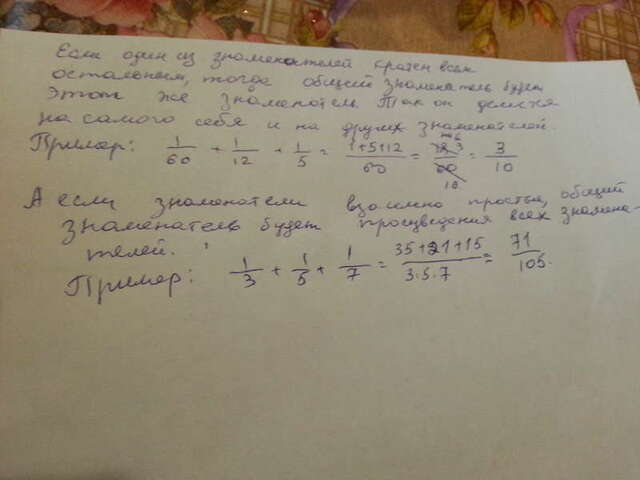 Если один из знаменателей кратен всем
остальным, тогда общий знаменатель будет
этот же знаменатель. Так он делится
на самого себя и на других знаменателей.
Пример: 1/60 + 1/12 + 1/5 = 1+5+12/60 = 18 3/60 10 = 3/10
А если знаменатели взаимно простые, общий
знаменатель будет произведения всех знамена-
телей.
Пример: 1/3 + 1/5 + 1/7 = 35+21+15/3·5·7 = 71/105.